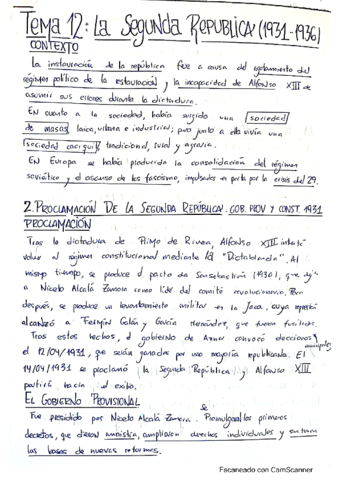 Tema 12: La Segunda República (1931-1936)
CONTEXTO
La instauración de la república fue a causa del agotamiento del
régimen político de la restauración y la incapacidad de Alfonso XIII de
asumir sus errores durante la dictadura.
En cuanto a la sociedad, había surgido una sociedad
de masas, laica, urbana e industrial; pero junto a ella vivía una
sociedad caciquil, tradicional, rural y agraria.
En Europa se había producido la consolidación del régimen
soviético y el ascenso de los fascismo, impulsados en parte por la crisis del 29.
2. PROCLAMACIÓN DE LA SEGUNDA REPÚBLICA. GOB. PROV Y CONST. 1931
PROCLAMACIÓN
Tras la dictadura de Primo de Rivera, Alfonso XIII intentó
volver al régimen constitucional mediante la "Dictablanda". Al
mismo tiempo, se produce el pacto de San Sebastián (1930), que
a Niceto Alcalá Zamora como líder del comité revolucionario. Poco
después, se produce un levantamiento militar en Jaca, cuya represión
alcanzó a Fermín Galán y García Hernández, que fueron fusilados.
Tras estos hechos, el gobierno de Aznar convocó elecciones
municipales
el 12/04/1931, que serán ganadas por una mayoría republicana. El
14/04/1931 se proclamó la Segunda República y Alfonso XIII
partirá hacia el exilio.
EL GOBIERNO PROVISIONAL
Fue presidido por Niceto Alcalá Zamora. Se promulgan los primeros
decretos, que dieron amnistía, ampliaron derechos individuales y
las bases de nuevas reformas.
Escaneado con CamScanner